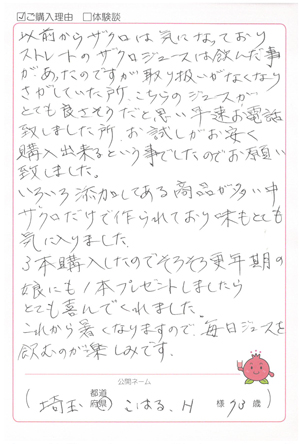 ☑ご購入理由 □体験談
以前からザクロは気になっており
ストレートのザクロジュースは飲んだ事
があったのですが取り扱いがなくなり
さがしていた所、こちらのジュースが
とても良さそうだと思い早速お電話
致しました所、お試しがお安く
購入出来るという事でしたのでお願い
致しました。
いろいろ添加してある商品が多い中
ザクロだけで作られており味もとても
気に入りました。
3本購入したのでそろそろ更年期の
娘にも1本プレゼントしましたら
とても喜んでくれました。
これから暑くなりますので、毎日ジュースを
飲むのが楽しみです。
公開ネーム
(埼玉 都道府県 こはる.H 様 歳)